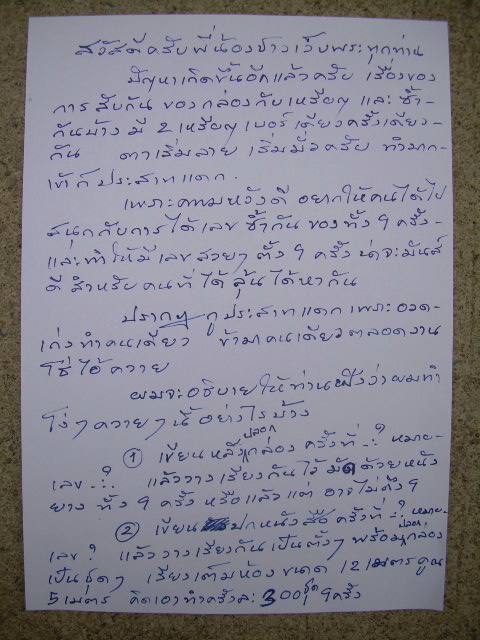 สวัสดีครับพี่น้องชาวเว็บพระทุกท่าน
ปัญหาเกิดขึ้นอีกแล้วครับ เรื่องของ
การสับกัน ของกล่องกับเหรียญ และซ้ำ-
กันบ้าง มี 2 เหรียญ เบอร์เดียวครั้งเดียว-
กัน ตาเริ่มลาย เริ่มมั่วครับ ทำมาก-
เข้าก็ประสาทแดก.
เพราะความหวังดี อยากให้คนได้ไป
สนุกกับการได้เลขซ้ำกัน ของทั้ง 9 ครั้ง-
และทำให้มีเลขสวยๆ ตั้ง 9 ครั้ง น่าจะมันส์
ดี สำหรับคนที่ได้ลุ้นได้หากัน
ปรากฎ กูประสาทแดก เพราะอวด-
เก่งทำคนเดียว ข้ามาคนเดียวตลอดงาน
โง่ไอ้ควาย
ผมจะอธิบายให้ท่านฟังว่าผมทำ
โง่ๆควายๆนี้ อย่างไรบ้าง
① เขียนหลังปลอกกล่อง ครั้งที่ .:? หมาย-
เลข .:.? แล้ววางเรียงกันไว้ มัดด้วยหนัง
ยาง ทั้ง 9 ครั้ง หรือแล้วแต่ อาจไม่ถึง 9
② เขียนปกหนังสือ ครั้งที่ .:? หมาย-
เลข ? แล้ววางเรียงกันเป็นตั้งๆ พร้อมปลอกกล่อง
เป็นชุดๆ เรียงเต็มห้อง ขนาด 12 เมตร คูณ
5 เมตร คิดเอาทำครั้งละ 300 ชุด 9 ครั้ง